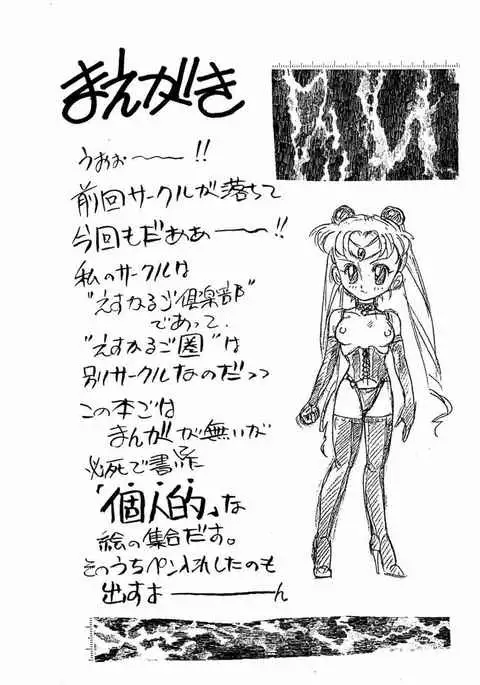 まえがき
うぉぉ〜〜!!
前回サークルが落ちて
今回もだぁぁ〜〜!!
私のサークルは
"えすかるご倶楽部"
であって、
"えすかるご圏"は
別サークルなのだっっ
この本ごは
まんがが無いが
必死で書いた
「個人的」な
絵の集合だす。
そのうちペン入れしたのも
出すよーーーん